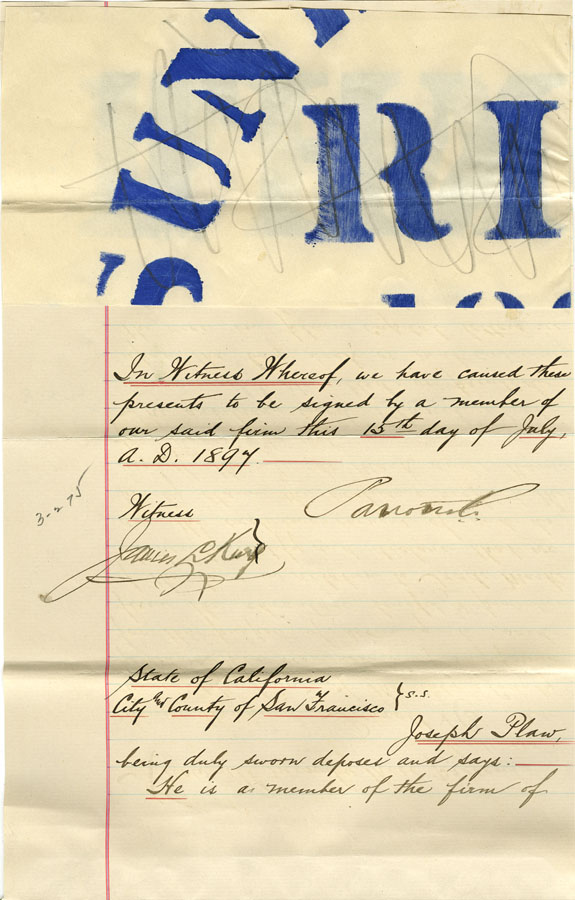 UN
RI
'S
In Witness Whereof, we have caused these
presents to be signed by a member of
our said firm this 15th day of July,
A. D. 1897.
3-2-75
Witness
James L. King
State of California
City and County of San Francisco } S.S.
Joseph Plaw,
being duly sworn deposes and says:
He is a member of the firm of